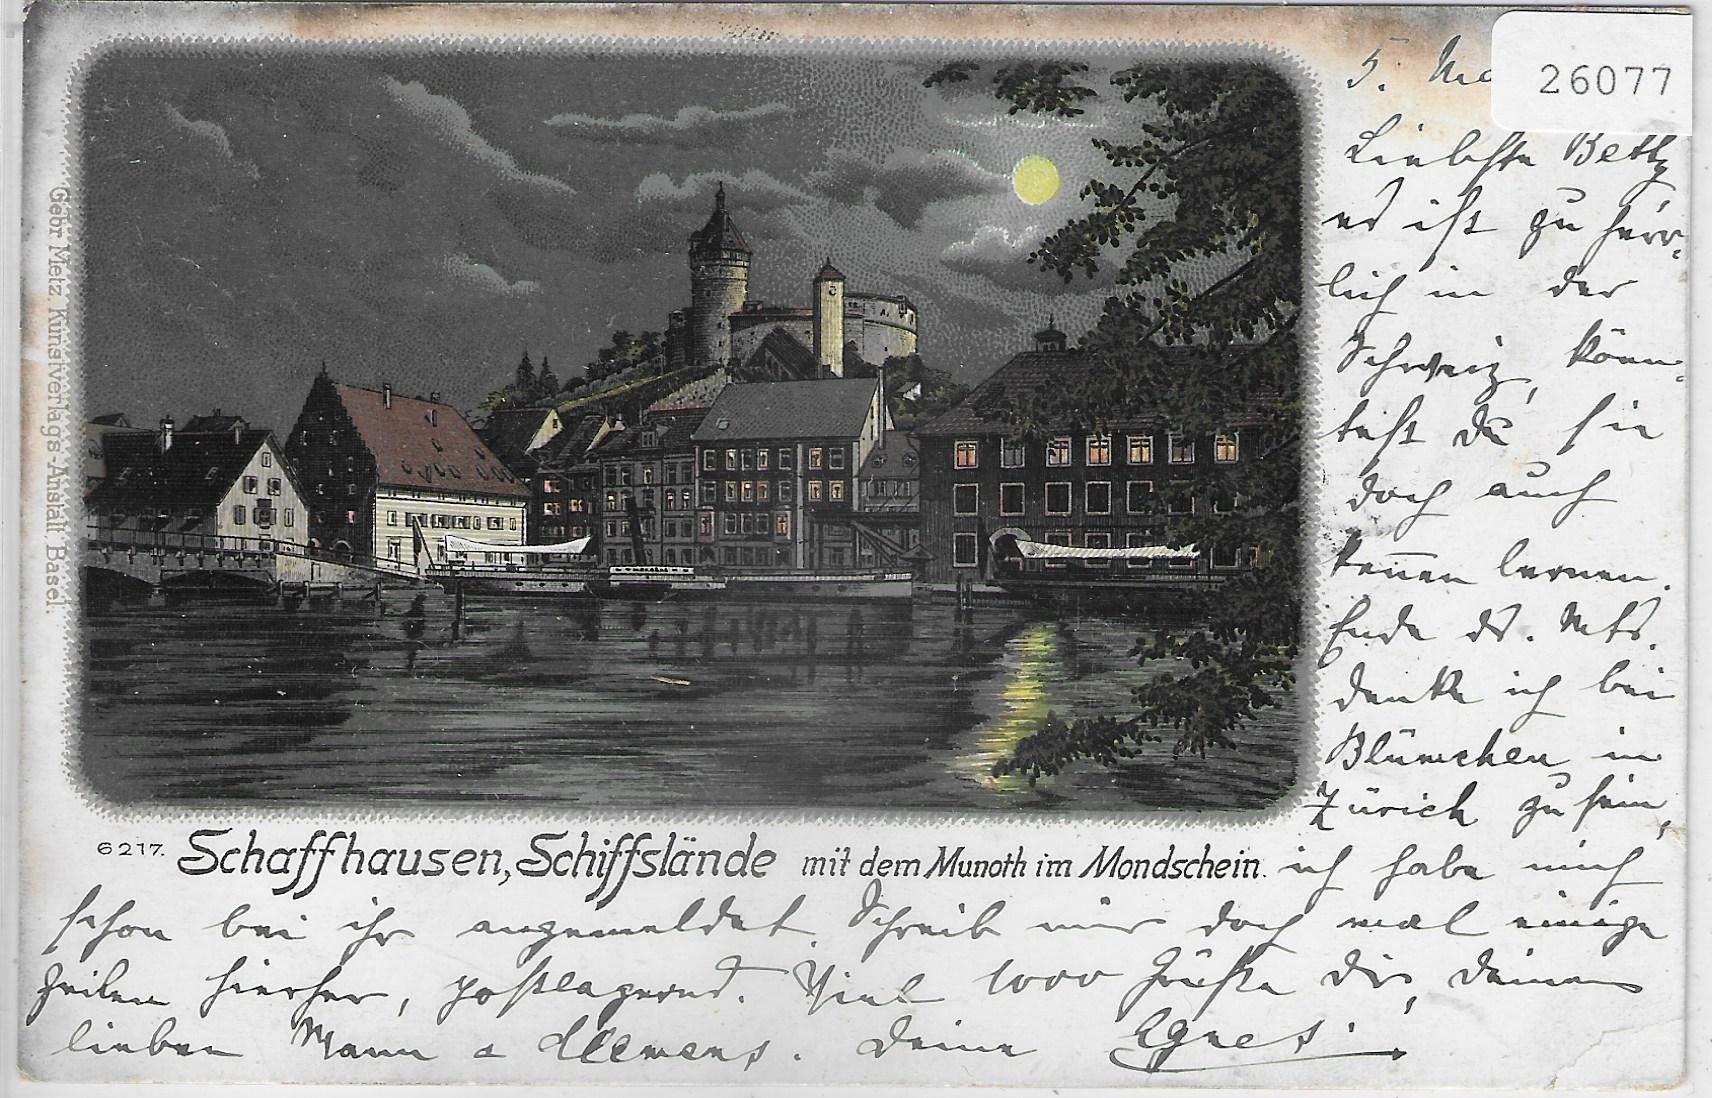 26077
5. Ma
Liebste Betty
es ist zu herr-
lich in der
Schweiz, könn-
test du sie
doch auch
kennen lernen.
Ende ds. Mts.
denke ich bei
Blümchen in
Zürich zu sein,
ich habe mich
schon bei ihr angemeldet. Schreib mir doch mal einige
Zeilen hierher, postlagernd. Viel 1000 Grüße dir, deinem
lieben Mann & Clemens. Deine Agnes.
6217. Schaffhausen, Schiffslände mit dem Munoth im Mondschein.
Gebr Metz, Kunstverlags-Anstalt Basel.